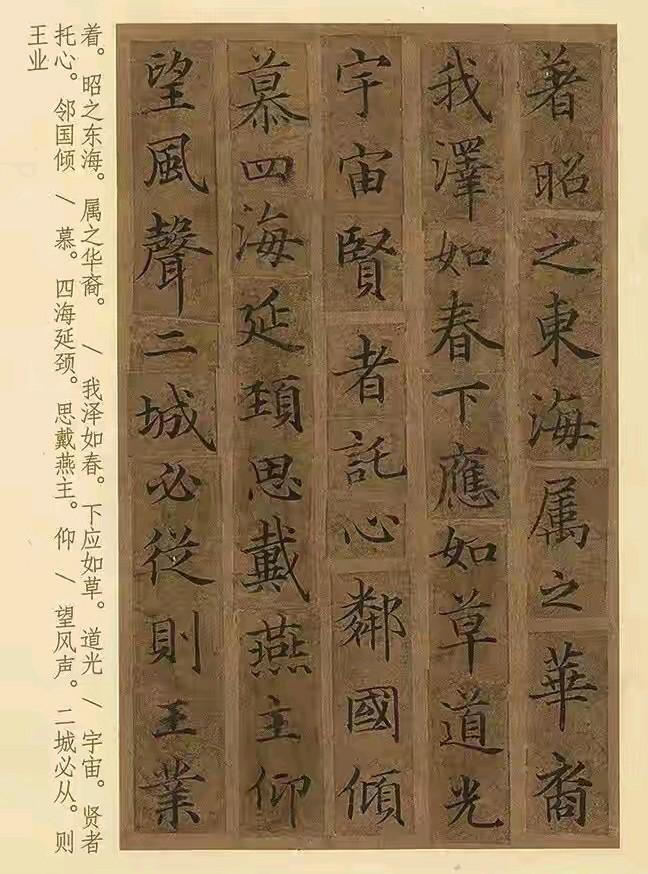 著昭之東海属之華裔
我澤如春下應如草道光
宇宙賢者託心鄰國傾
慕四海延頚思戴燕主仰
望風聲二城必從則王業
着。昭之东海。属之华裔。 \ 我泽如春。下应如草。道光 \ 宇宙。贤者
托心。邻国倾 \ 慕。四海延颈。思戴燕主。仰 \ 望风声。二城必从。则
王业